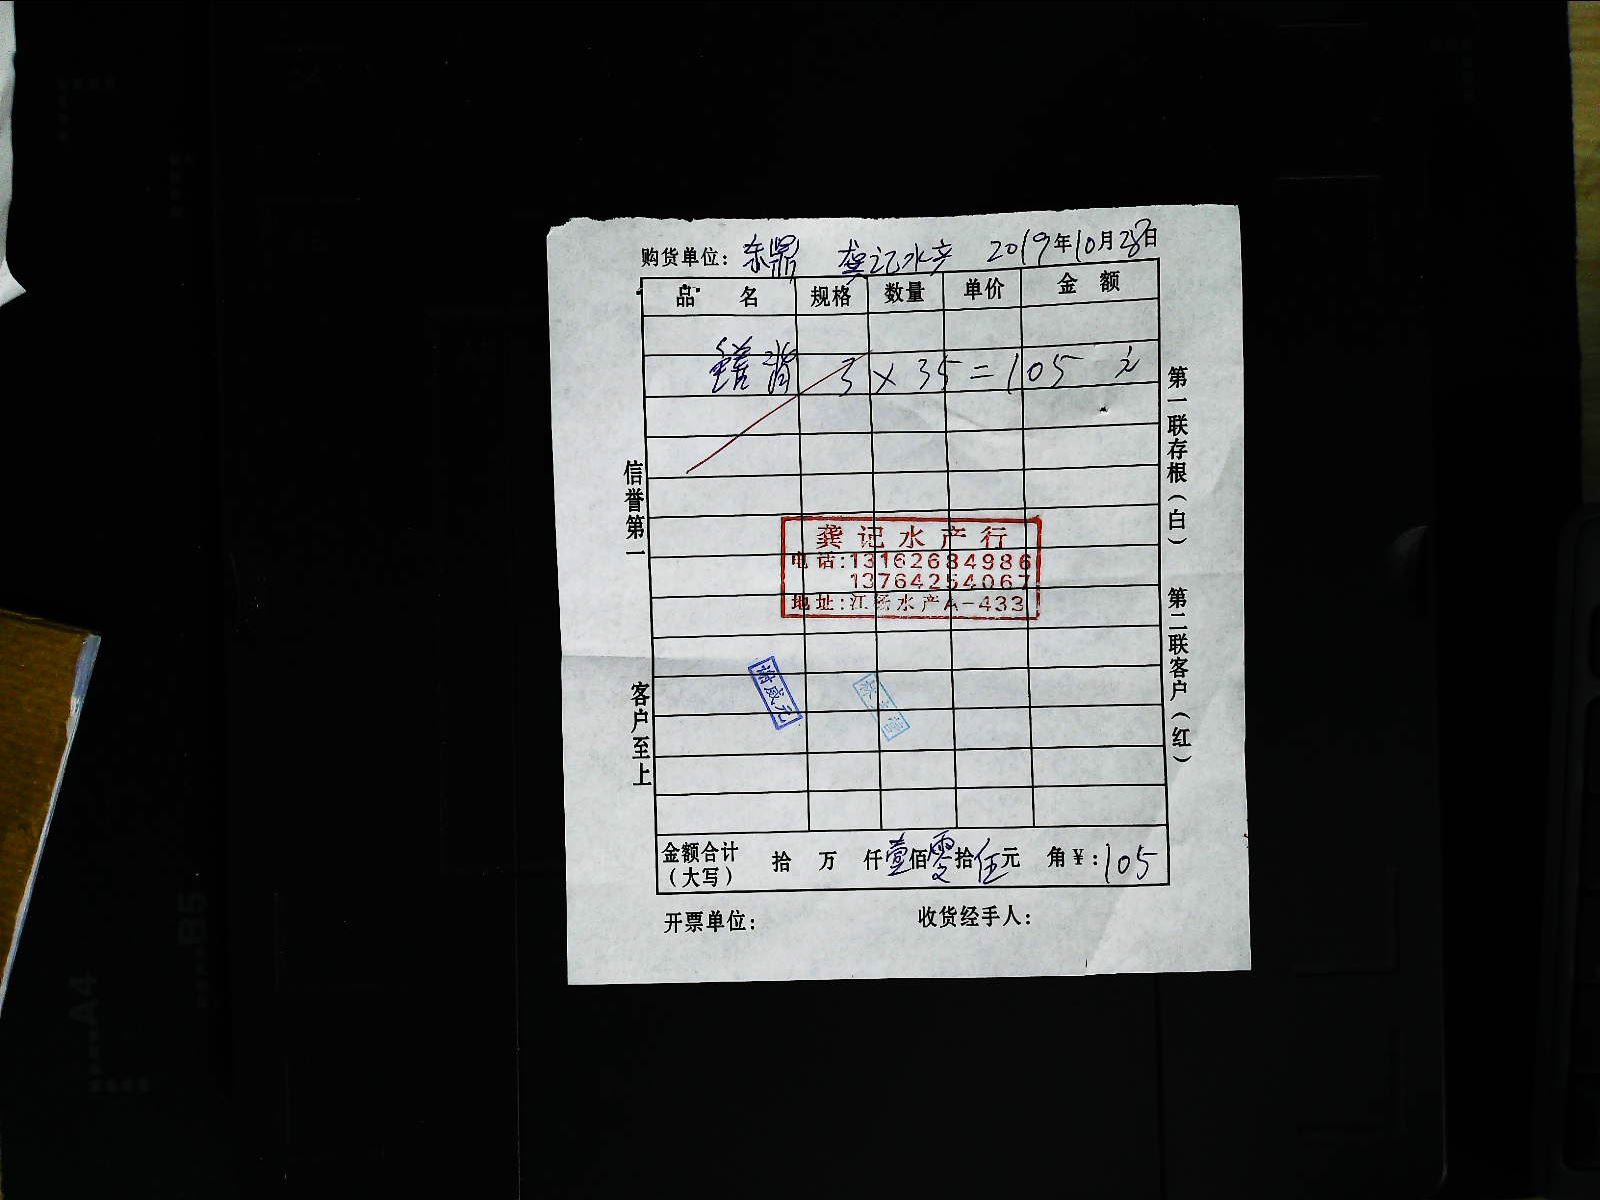 购货单位：东鼎 龚记水产 2019年10月28日
品名 规格 数量 单价 金额
3 × 35 = 105 元
信誉第一
客户至上
第一联存根（白）
第二联客户（红）
龚记水产行
电话:13162684986
13764254067
地址:江杨水产A-433
谢威元
金额合计（大写） 拾 万 仟壹佰零拾伍元 角￥:105
开票单位： 收货经手人：
A4
B5